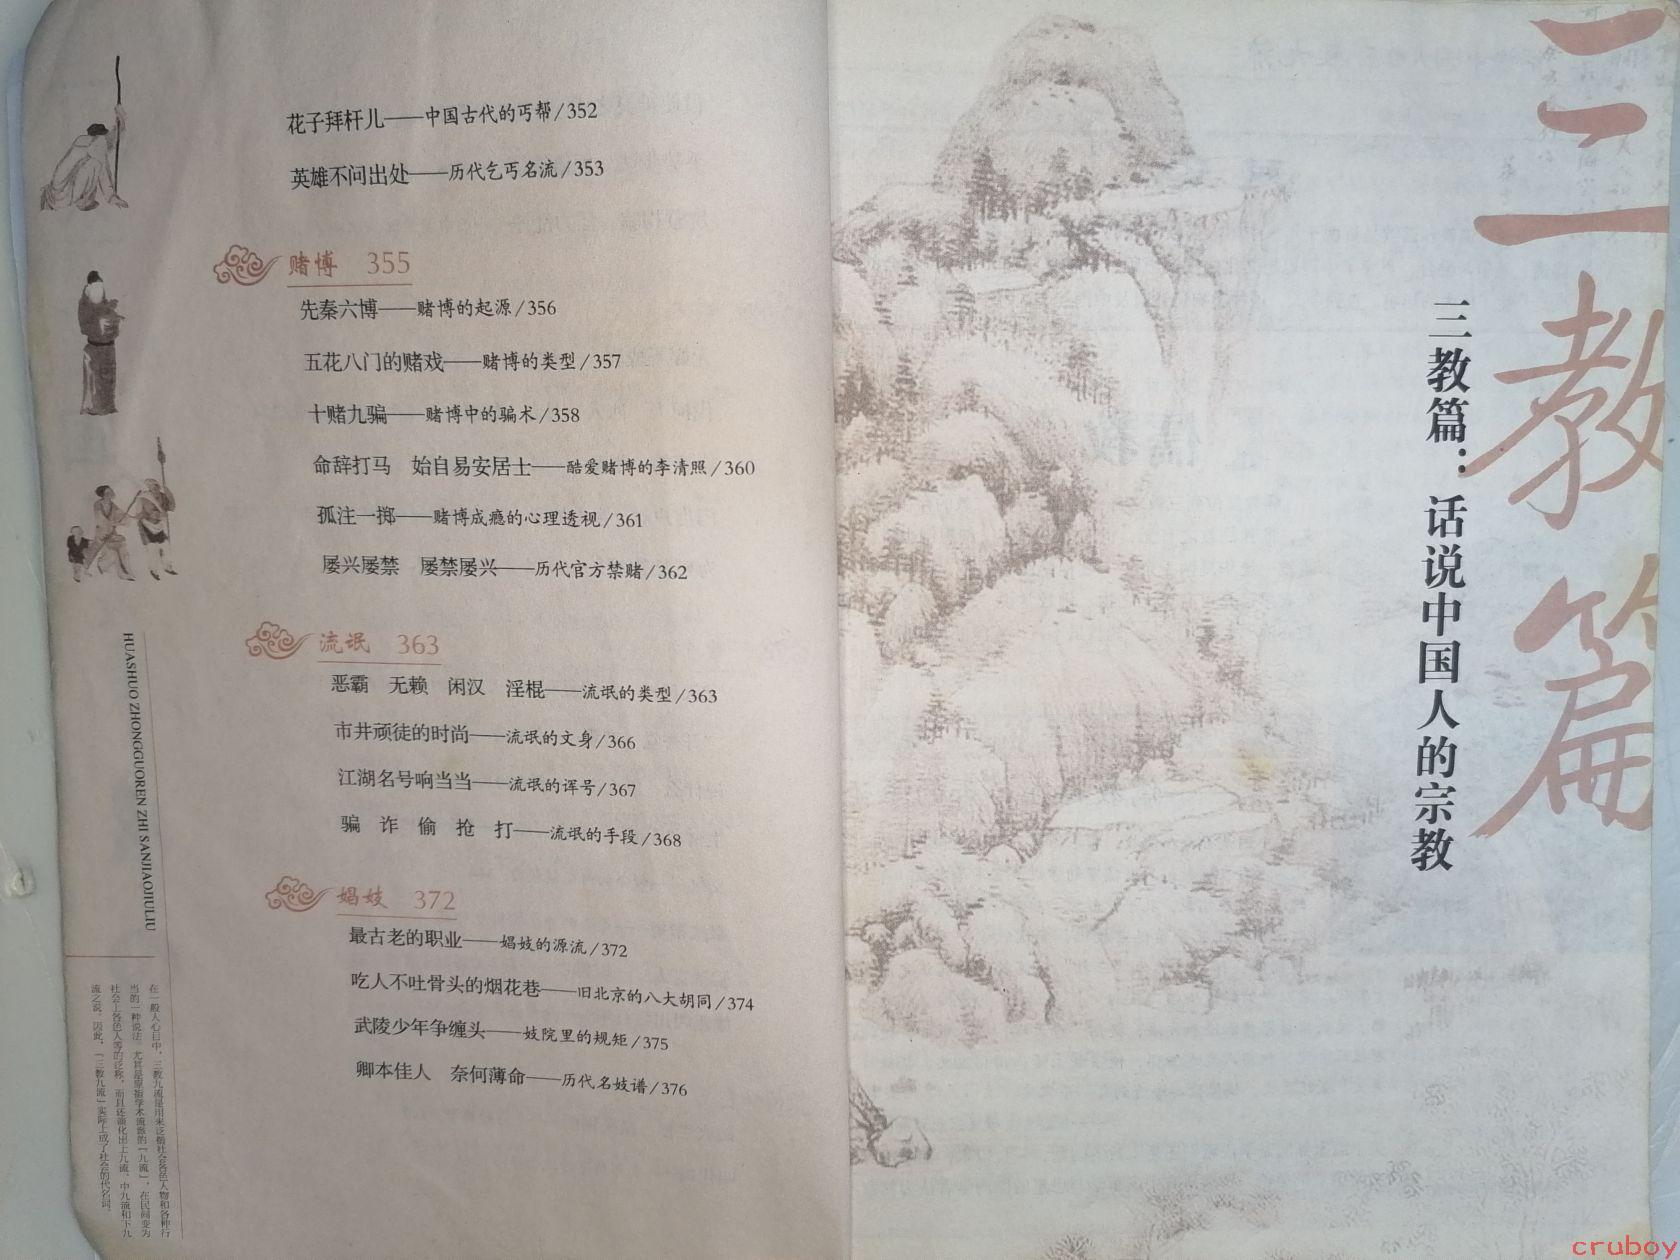 花子拜杆儿——中国古代的丐帮/352
英雄不问出处——历代乞丐名流/353
赌博 355
先秦六博——赌博的起源/356
五花八门的赌戏——赌博的类型/357
十赌九骗——赌博中的骗术/358
命辞打马 始自易安居士——酷爱赌博的李清照/360
孤注一掷——赌博成瘾的心理透视/361
屡兴屡禁 屡禁屡兴——历代官方禁赌/362
流氓 363
恶霸 无赖 闲汉 淫棍——流氓的类型/363
市井顽徒的时尚——流氓的文身/366
江湖名号响当当——流氓的诨号/367
骗 诈 偷 抢 打——流氓的手段/368
娼妓 372
最古老的职业——娼妓的源流/372
吃人不吐骨头的烟花巷——旧北京的八大胡同/374
武陵少年争缠头——妓院里的规矩/375
卿本佳人 奈何薄命——历代名妓谱/376
HUASHUO ZHONGGUOREN ZHI SANJIAOJIULIU
在一般人心目中，三教九流是用来泛指社会各色人物和各种行
当的一种说法。尤其是原指学术流派的「九流」，在民间变为
社会上各色人等的泛称，而且还演化出上九流、中九流和下九
流之说。因此，「三教九流」实际上成了社会的代名词。
三教篇
三教篇：话说中国人的宗教
cruboy